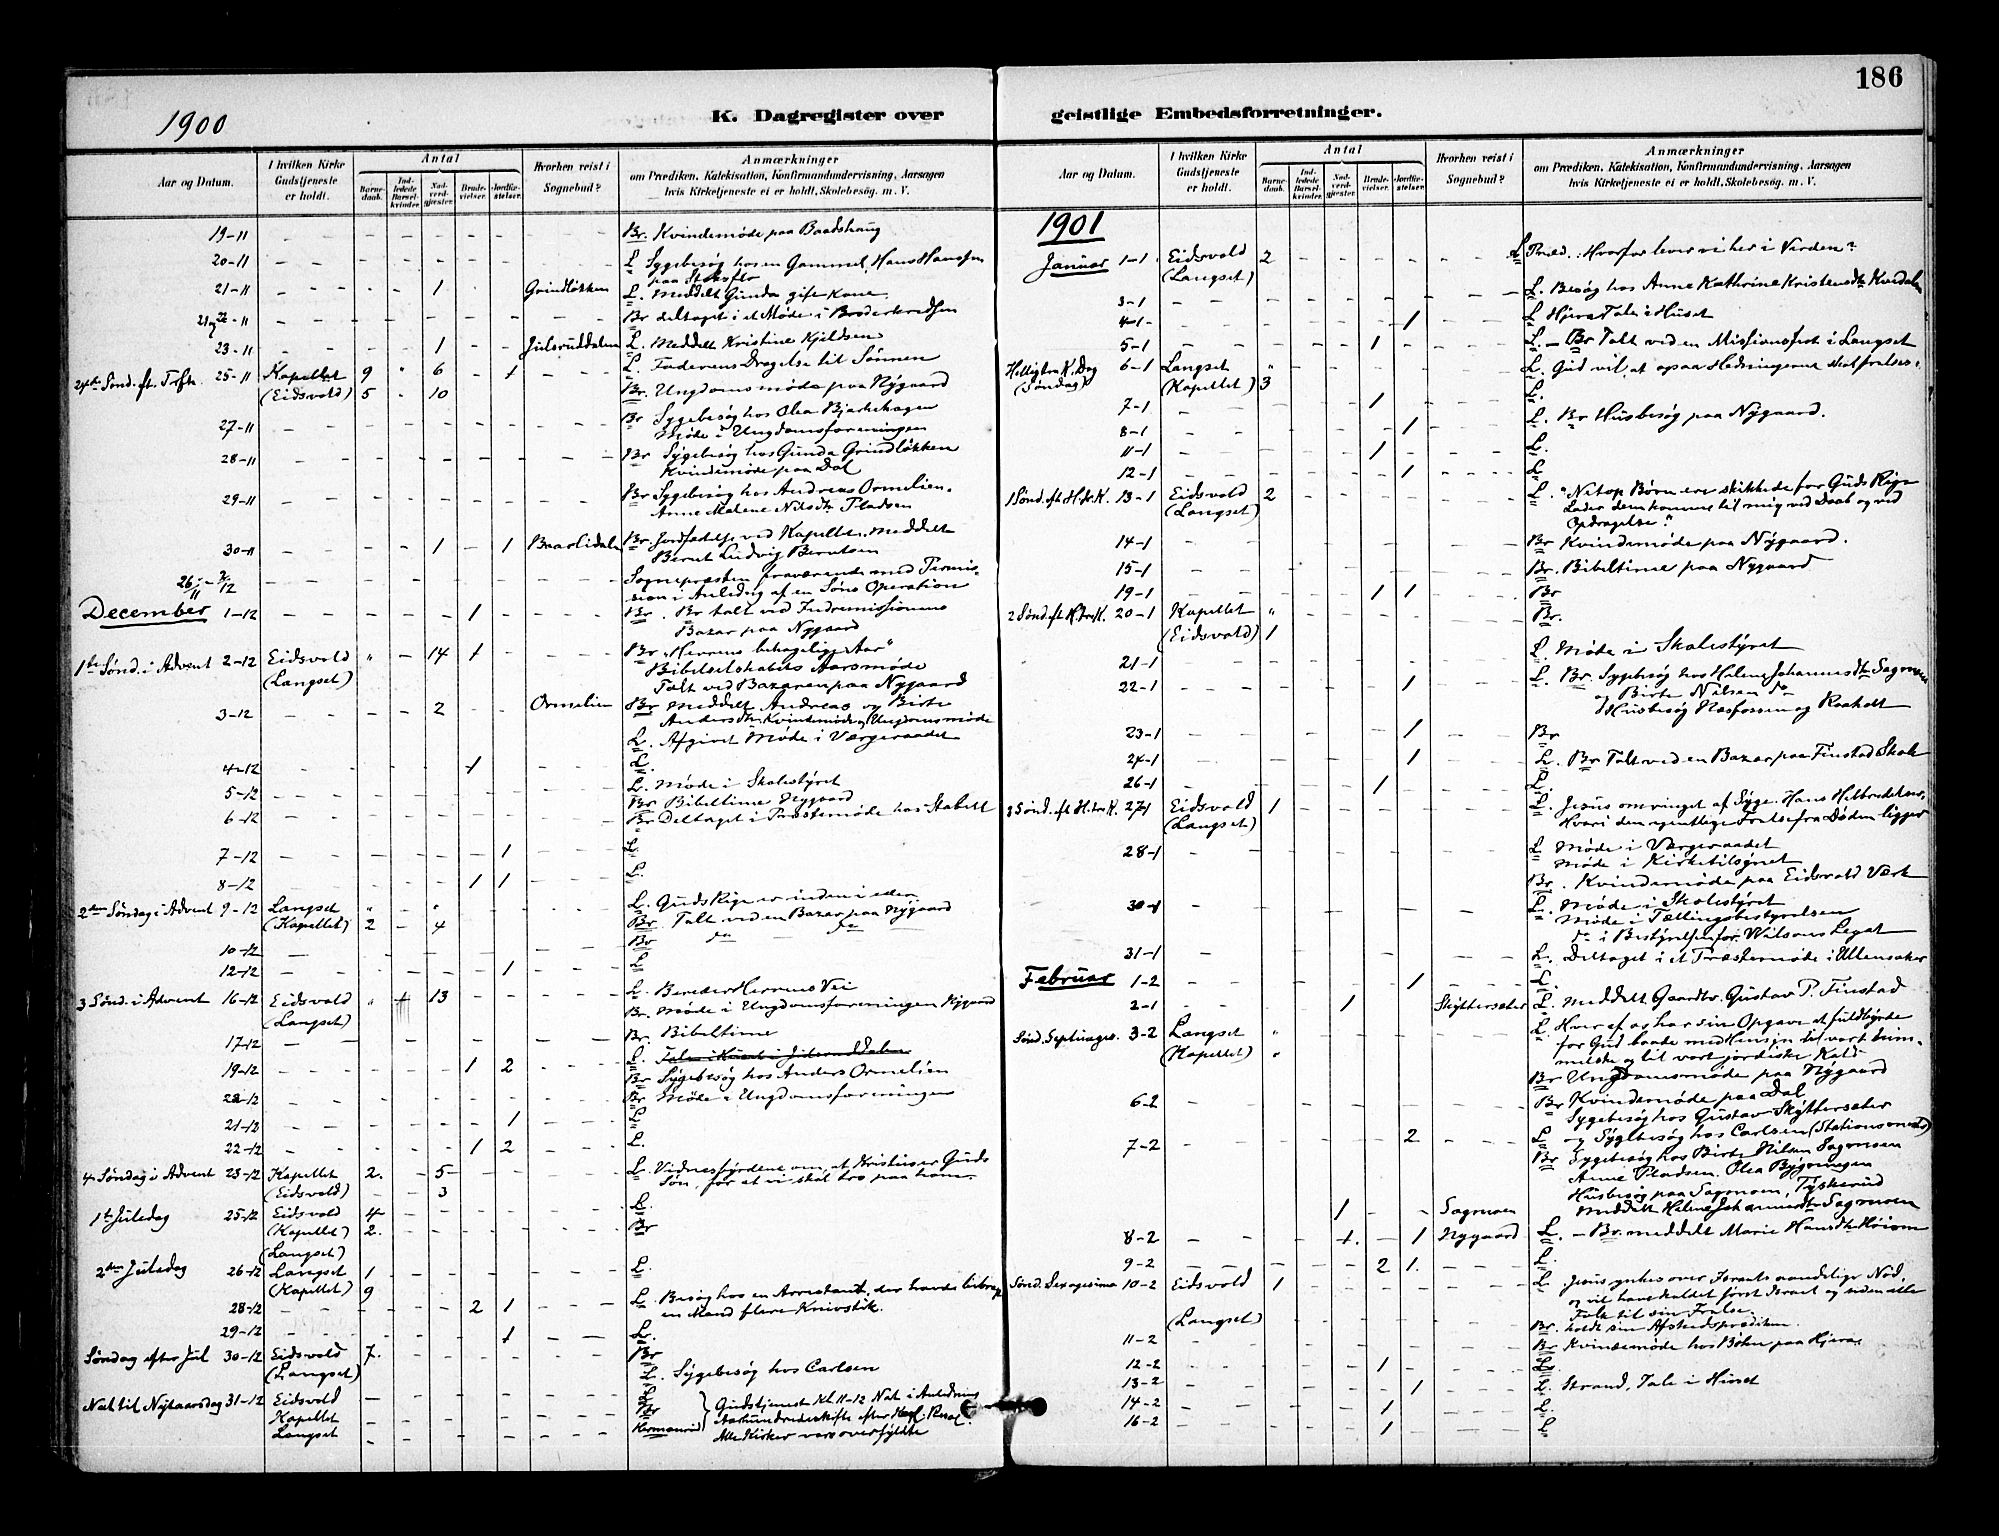 186
1900
K. Dagregister over
geistlige Embedsforretninger.
Aar og Datum.
I hvilken Kirke Gudstjeneste er holdt.
Antal
Barne-daab.
Ind-ledede Barsel-kvinder.
Nad-verd-gjester.
Brude-vielser.
Jordfæ-stelser.
Hvorhen reist i Sognebud?
Anmærkninger
om Prædiken, Katekisation, Konfirmandundervisning, Aarsagen
hvis Kirketjeneste ei er holdt, Skolebesøg. m. V.
19-11 Br. Kvindemøde paa Baadshaug
20-11 L Sygebesøg hos en Gammel, Hans Hansen
21-11 1 Grindløkken L. Meddelt Gunda gift Kone.
Br deltaget i et Møde i Broderkredsen
23-11 1 Julsruddalen L. Meddelt Kristine Kjeldsen
25-11 Kapellet 9 " 6 - 1 L. Faderens Dragelse til Sønnen
(Eidsvold) 5 - 10 Br. Ungdomsmøde paa Nygaard
27-11 Br Sygebesøg hos Olea Bjerkehagen
Møde i Ungdomsforeningen
28-11 Br Sygebesøg hos Gunda Grindløkken
Kvindemøde paa Dal
29-11 Br Sygebesøg hos Andreas Ormelien.
Anne Malene Nilsdtr Pladsen
30-11 1 - 1 Baarlidalen Br. Jordfæstelse ved Kapellet. Meddelt
Bernt Ludvig Berntsen
Sognepræsten fraværende med Permis-
sion i Anledng af en Søns Operation
December 1-12 1 Br. Br talt ved Indremissionens
Bazar paa Nygaard
1ste Sønd. i Advent 2-12 Eidsvold " - 14 1 Br „Herrens behagelige Aar"
(Langset) Bibelselskabets Aarsmøde
Talt ved Bazaren paa Nygaard
3-12 2 Ormelien Br Meddelt Andreas og Birte
Andersdtr. Kvindemøde og Ungdomsmøde
L. Afgivet Møde i Værgeraadet
4-12 1 L.
5-12 L. Møde i Skolestyret
Br Bibeltime Nygaard
6-12 Br Deltaget i Præstemøde hos Stabell
7-12 1 L.
8-12 1 1 L.
2den Søndag i Advent 9-12 Langset " - " L. Guds Rige er inden i eder
(Kapellet) 2 - 4 Br. Talt ved en Bazar paa Nygaard
10-12 Br do do
12-12 1 L
3 Sønd. i Advent 16-12 Eidsvold " 13 L. Bereder Herrens Vei
(Langset) Br. Møde i Ungdomsforeningen Nygaard
17-12 Br. Bibeltime
19-12 1 2 L. Tale i Huset i Julsruddalen
Br Sygebesøg hos Anders Ormelien
Br Møde i Ungdomsforeningen
21-12 1 L
22-12 1 2 L.
4 Søndag i Advent 23-12 Kapellet 2. - 5 L. Vidnesbyrdene om, at Kristus er Guds
(Eidsvold) - - 3 Søn, for at vi skal tro paa ham.
1ste Juledag 25-12 Eidsvold 4 L.
(Kapellet) 2. Br
(Langset)
2den Juledag 26-12 Langset 1 L.
(Kapellet) 9
28-12 2 1 L. Besøg hos en Arrestant, der havde
en Mand flere Knivstik.
29-12 1 L.
Søndag efter Jul 30-12 Eidsvold 7. Br
(Langset) L. Sygebesøg hos Carlsen
Nat til Nytaarsdag 31-12 Eidsvold L Gudstjenest Kl. 11-12 Nat i Anledning
Kapellet Br Aarhundredeskifte efter Kgl. Resol.
Langset Hermanrud Alle Kirker vare overfyldte
Aar og Datum.
I hvilken Kirke Gudstjeneste er holdt.
Antal
Barne-daab.
Ind-ledede Barsel-kvinder.
Nad-verd-gjester.
Brude-vielser.
Jordfæ-stelser.
Hvorhen reist i Sognebud?
Anmærkninger
om Prædiken, Katekisation, Konfirmandundervisning, Aarsagen
hvis Kirketjeneste ei er holdt, Skolebesøg. m. V.
1901
Januar 1-1 Eidsvold 2 L Præd.: Hvorfor lever vi her i Verden?
(Langset) L. Besøg hos Anne Kathrine Kristensdtr
3-1
4-1 1 L Hjera Tale i Huset
5-1 1 L. - Br Talt ved en Missionsfest i Langset
Hellig tre K. Dag 6-1 Langset " L. Gud vil, at ogsaa Hedningerne skal frelses.
(Søndag) (Kapellet) 3 L.
7-1 1 L. Br Husbesøg paa Nygaard.
8-1 1 L.
11-1 1 L.
12-1 1
1 Sønd. eft H. tr. K. 13-1 Eidsvold 2 L. "Netop Børn ere skikkede for Guds Rige
(Langset) Lader dem komme til mig ved Daab og ved
Opdragelse."
14-1 Br Kvindemøde paa Nygaard.
15-1 Br. Bibeltime paa Nygaard
19-1 1 1 Br
2 Sønd. eft H. tre K. 20-1 Kapellet " Br.
(Eidsvold) 1
21-1 L. Møde i Skolestyret
22-1 1 L. Br. Sygebesøg hos Helene Johannesdtr Sagmoen
og Birte Nilsen do
Husbesøg Næsfossen og Raaholt
23-1 1 Br
24-1 1 L. Br Talt ved en Bazar paa Finstad Skole
26-1 1 L.
3 Sønd. eft H. tre K. 27-1 Eidsvold 1 L. Jesus omringet af Syge. Hans Helbredelser.
(Langset) Hvori den egentlige Frelse fra Døden ligger
28-1 L Møde i Værgeraadet
Møde i Kirketilsynet
Br. Kvindemøde paa Eidsvold Værk
30-1 L. Møde i Skolestyret
Møde i Tællingsbestyrelsen
do i Bestyrelsen for Wilsons Legat
31-1 L. Deltaget i et Præstemøde i Ullensaker
Februar 1-2 1 L.
2-1 1 Skyttersæter L. Meddelt Gaardbr. Gustav P. Finstad
Sønd. Septuages. 3-2 Langset " L. Hver af os har sin Opgave at fuldbyrde
(Kapellet) " for Gud baade med Hensyn til vort him-
melske og til vort jordiske Kald
Br Ungdomsmøde paa Nygaard
6-2 Br Kvindemøde paa Dal
Sygebesøg hos Gustav Skyttersæter
7-2 2 L og Sygebesøg hos Carlsen (Stationsmester)
Br Sygebesøg hos Birte Nilsen Sagmoen
Anne Pladsen. Olea Bygningen
Husbesøg paa Sagmoen, Tyskerud
1 Sagmoen Meddelt Helene Johannesdtr Sagmoen
8-2 1. - 1 Nygaard L. - Br. meddelt Marie Hansdtr
9-2 2 1. L.
Sønd. Sexagesima 10-2 Eidsvold 1 L. Jesus ynkes over Israels aandelige Nød,
og vil have kaldet først Israel og siden alle
(Langset) Folk til sin Frelse.
Br. holdt sin Afskedsprædiken.
11-2 Br Kvindemøde hos Bøhn paa Hjera.
12-2 1 L.
13-2 1 L. Strand, Tale i Huset
14-2 1 L.
16-2 1 L